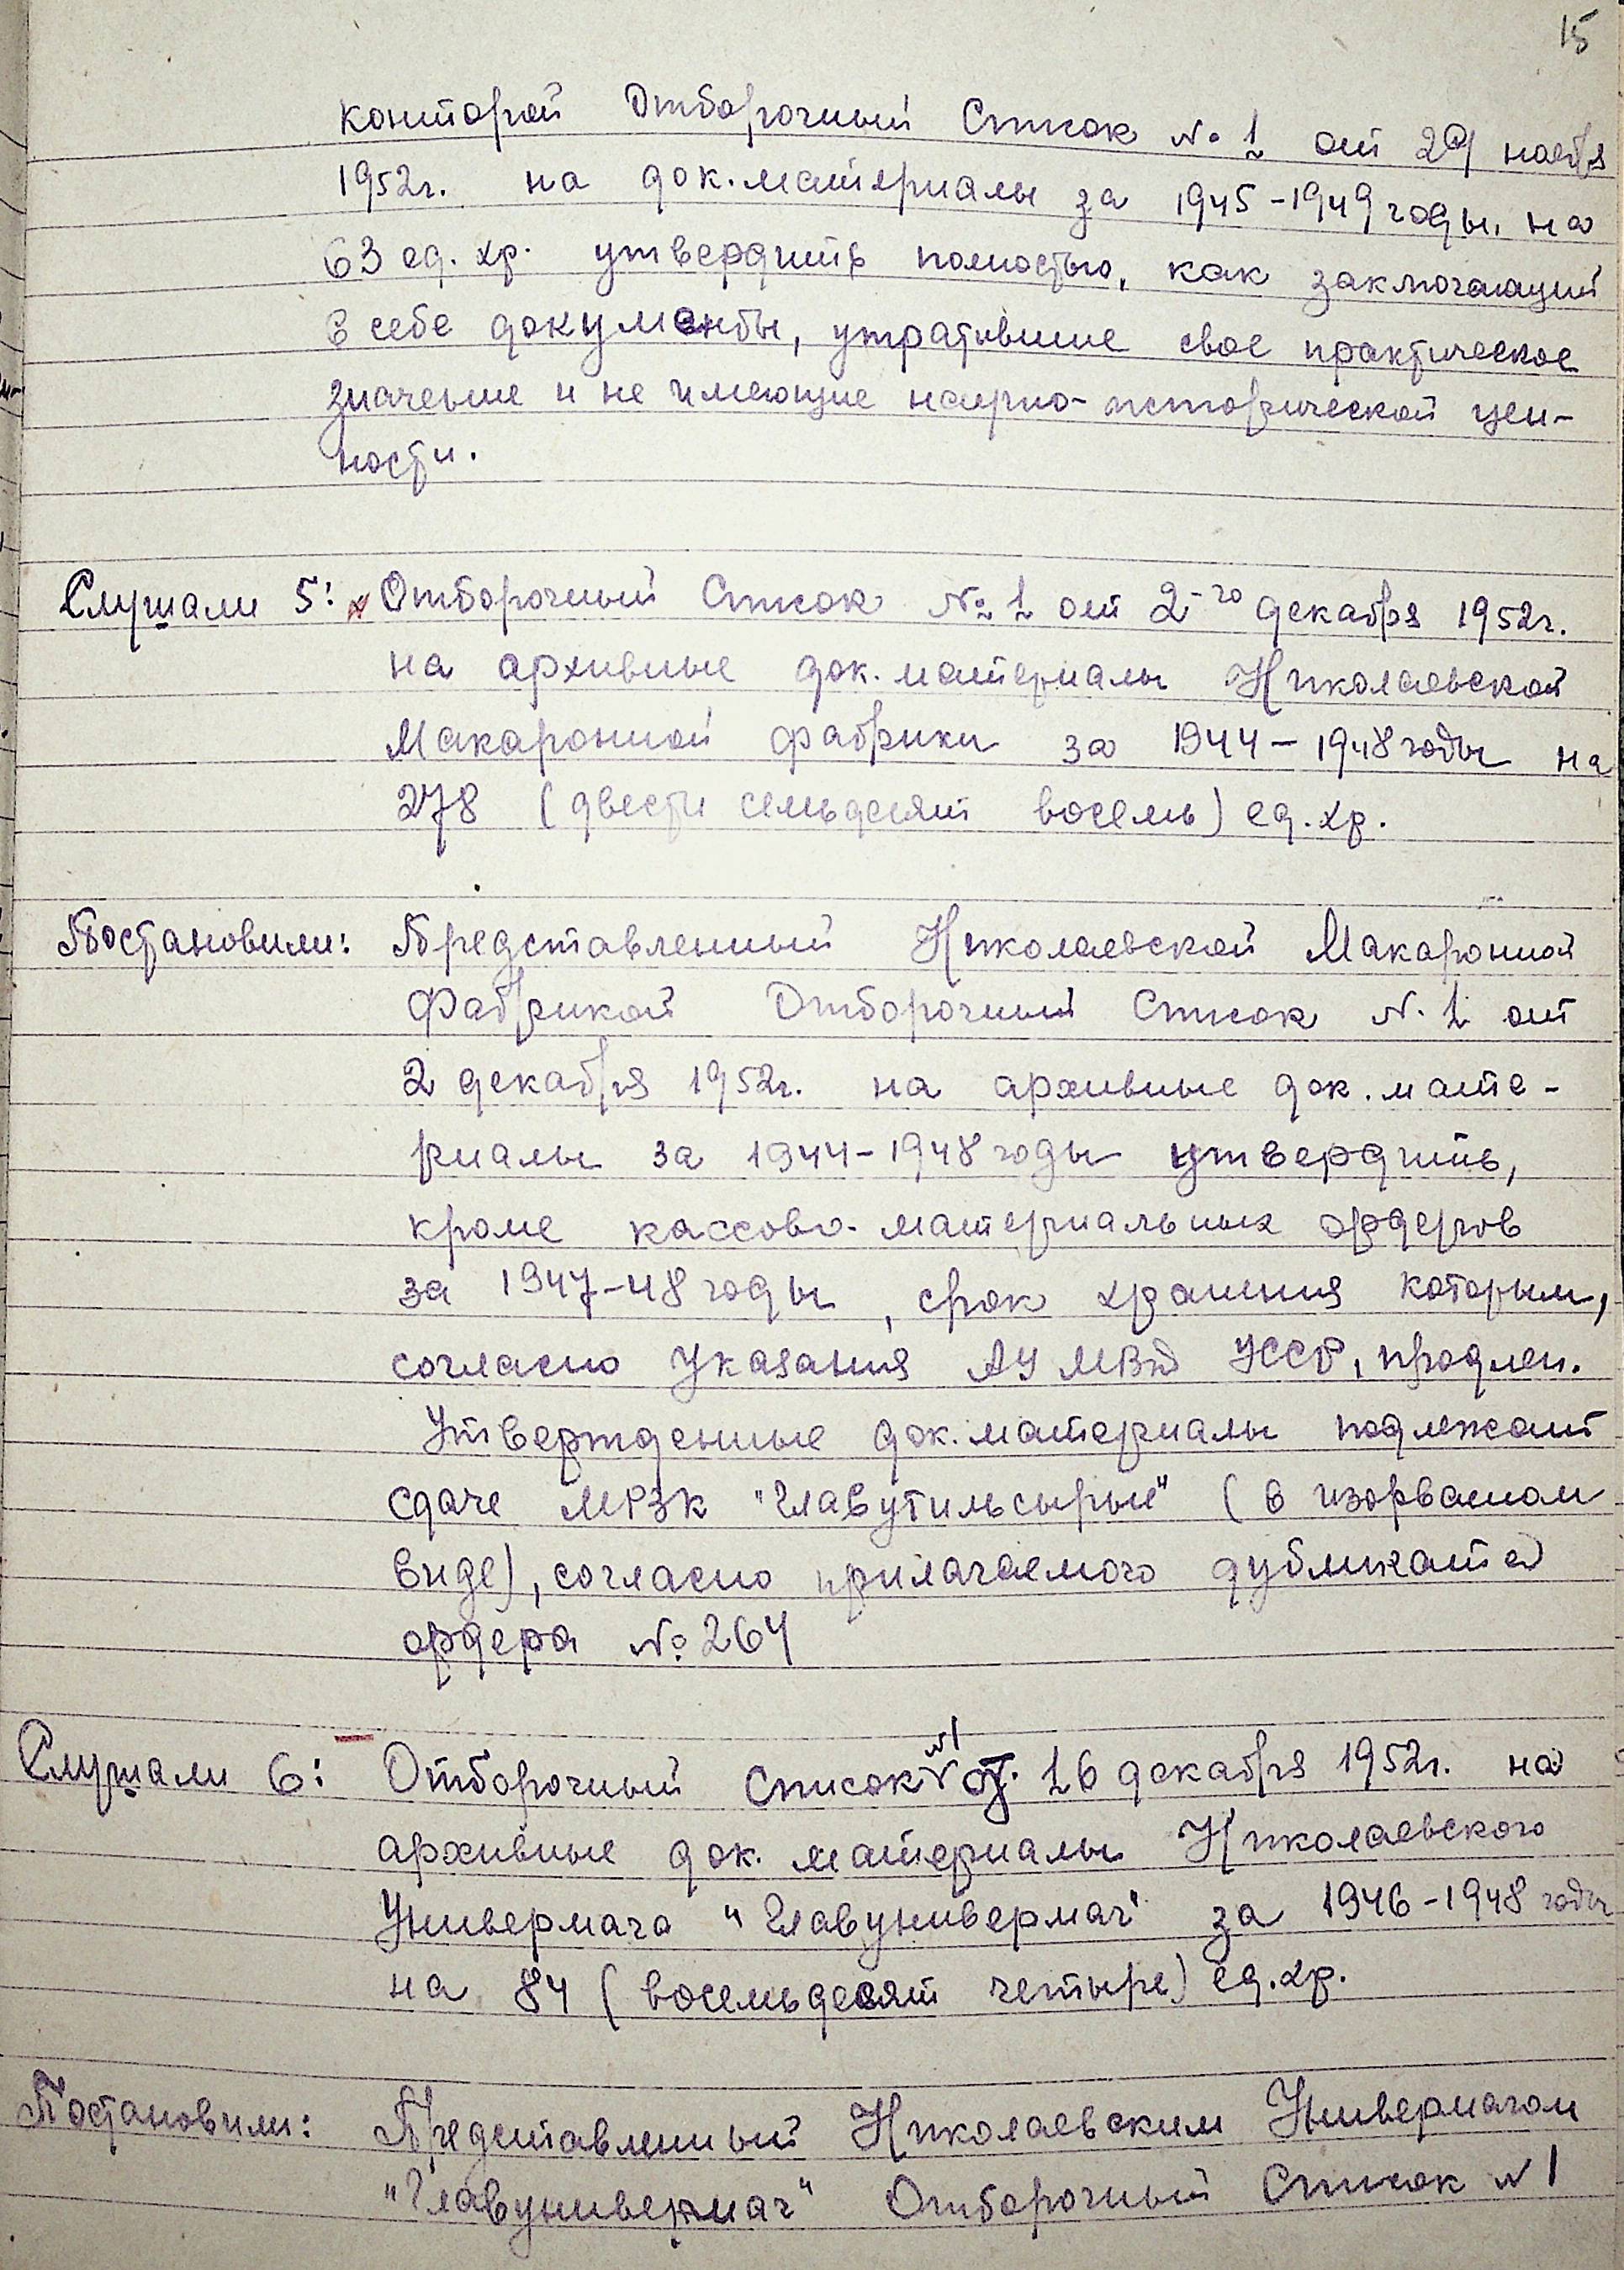 15
конторой Отборочный Список № 1 от 29 ноября
1952г. на док. материалы за 1945-1949 годы, на
63 ед. хр. утвердить полностью, как заключающий
в себе документы, утратившие свое практическое
значение и не имеющие научно-исторической цен-
ности.
Слушали 5: Отборочный Список № 1 от 2-го декабря 1952г.
на архивные док. материалы Николаевской
Макаронной фабрики за 1944-1948 годы на
278 (двести семьдесят восемь) ед. хр.
Постановили: Представленный Николаевской Макаронной
Фабрикой Отборочный Список №. 1 от
2 декабря 1952г. на архивные док. мате-
риалы за 1944-1948 годы утвердить,
кроме кассово-материальных ордеров
за 1947-48 годы, срок хранения которым,
согласно Указания АУ МВД УССР, продлен.
Утвержденные док. материалы подлежат
сдаче МРЗК "Главутильсырье" (в изорваном
виде), согласно прилагаемого дубликата
ордера № 264
Слушали 6: Отборочный Список №1 от. 16 декабря 1952г. на
архивные док. материалы Николаевского
Универмага "Главунивермаг" за 1946-1948 годы
на 84 (восемьдесят четыре) ед. хр.
Постановили: Представленный Николаевским Универмагом
"Главунивермаг" Отборочный Список №1